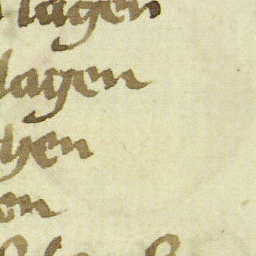 lagen
lagen
hen
en